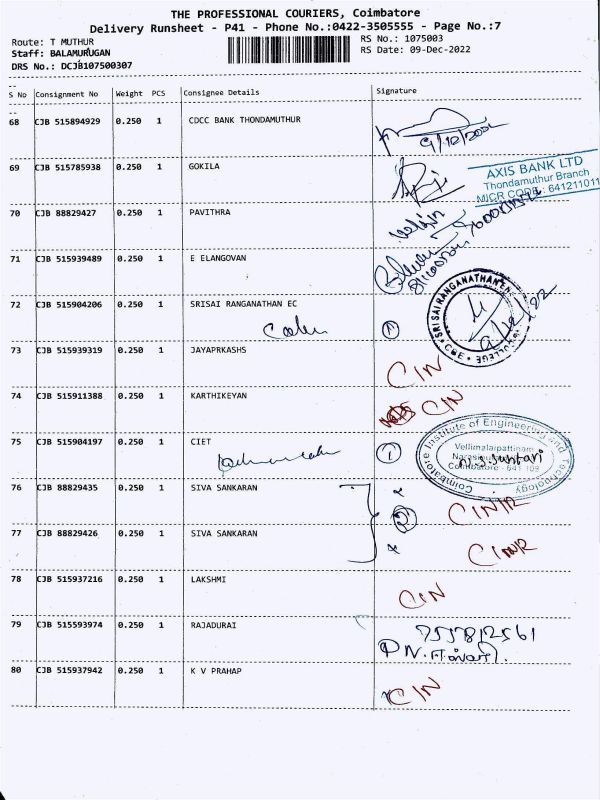 THE PROFESSIONAL COURIERS, Coimbatore
Delivery Runsheet - P41 - Phone No.:0422-3505555 - Page No.:7
Route: T MUTHUR
RS No.: 1075003
Staff: BALAMURUGAN
RS Date: 09-Dec-2022
DRS No.: DCJB107500307
S No Consignment No Weight PCS Consignee Details Signature
68 CJB 515894929 0.250 1 CDCC BANK THONDAMUTHUR
69 CJB 515785938 0.250 1 GOKILA
AXIS BANK LTD
Thondamuthur Branch
MICR CODE: 641211011
70 CJB 88829427 0.250 1 PAVITHRA
71 CJB 515939489 0.250 1 E ELANGOVAN
72 CJB 515904206 0.250 1 SRISAI RANGANATHAN EC
①
SRI SAI RANGANATHAN
COLLEGE
CBE
73 CJB 515939319 0.250 1 JAYAPRKASHS CIN
74 CJB 515911388 0.250 1 KARTHIKEYAN CIN
75 CJB 515904197 0.250 1 CIET ①
Coimbatore Institute of Engineering and Technology
Vellimalaipattinam
Coimbatore - 641 109
76 CJB 88829435 0.250 1 SIVA SANKARAN CIN/R
②
77 CJB 88829426 0.250 1 SIVA SANKARAN CIN/R
78 CJB 515937216 0.250 1 LAKSHMI CIN
79 CJB 515593974 0.250 1 RAJADURAI
80 CJB 515937942 0.250 1 K V PRAHAP CIN